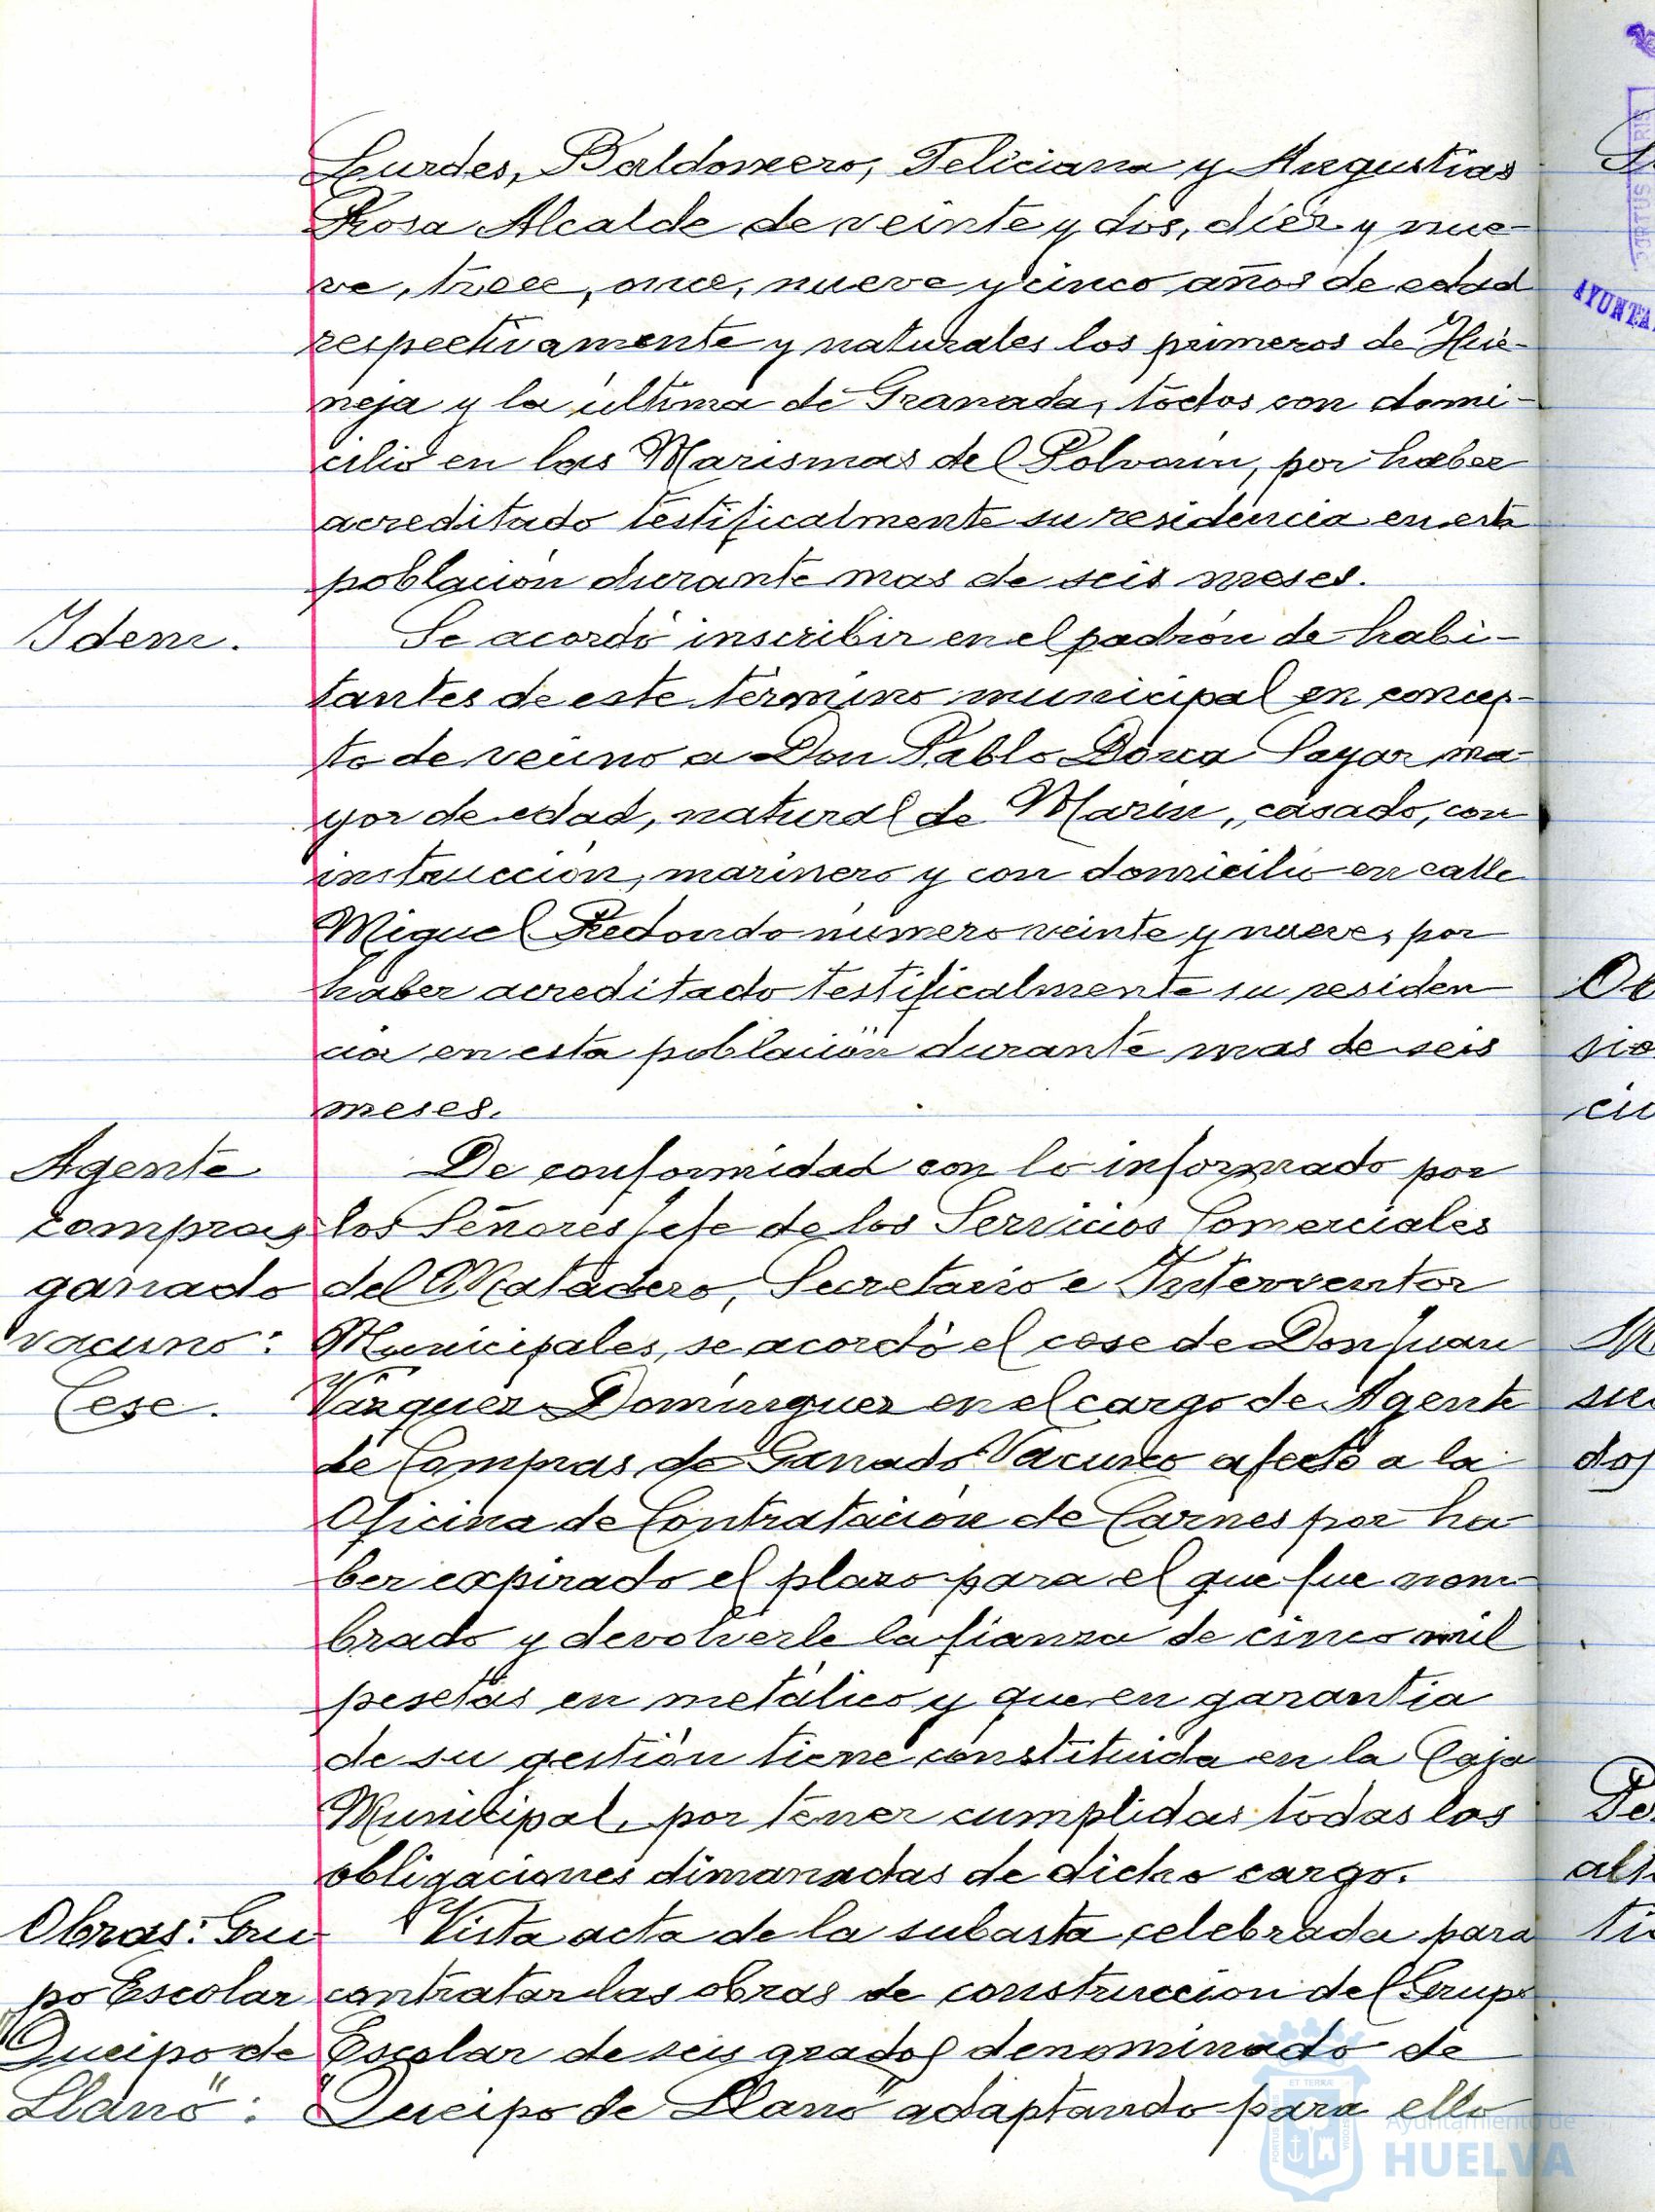 Lurdes, Baldomero, Feliciana y Angustias
Rosa Alcalde de veinte y dos, diez y nue-
ve, trece, once, nueve y cinco años de edad
respectivamente y naturales los primeros de Hué-
neja y la última de Granada, todos con domi-
cilio en las Marismas del Polvorín, por haber
acreditado testificalmente su residencia en esta
población durante mas de seis meses.
Idem.
Se acordó inscribir en el padrón de habi-
tantes de este término municipal en concep-
to de vecino a Don Pablo ma-
yor de edad, natural de Marín, casado, con
instrucción, marinero y con domicilio en calle
Miguel Redondo número veinte y nueve, por
haber acreditado testificalmente su residen
cia en esta población durante mas de seis
meses.
Agente
compras
ganado
vacuno:
Cese.
De conformidad con lo informado por
los Señores Jefe de los Servicios Comerciales
del Matadero, Secretario e Interventor
Municipales, se acordó el cese de Don Juan
Vázquez Domínguez en el cargo de Agente
de Compras de Ganado Vacuno afecto a la
Oficina de Contratación de Carnes por ha
ber expirado el plazo para el que fue nom
brado y devolverle la fianza de cinco mil
pesetas en metálico y que en garantía
de su gestión tiene constituida en la Caja
Municipal, por tener cumplidas todas las
obligaciones dimanadas de dicho cargo.
Obras: Gru
po Escolar
"Queipo de
Llano":
Vista acta de la subasta celebrada para
contratar las obras de construccion del Grupo
Escolar de seis grados denominado de
"Queipo de Llano" adaptando para ello
Ayuntamiento de
HUELVA
AYUNTA